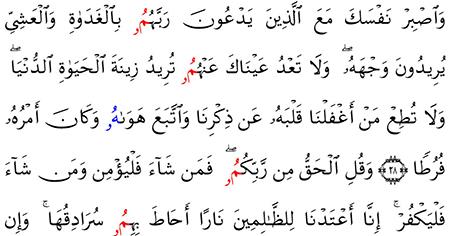 وَٱصْبِرْ نَفْسَكَ مَعَ ٱلَّذِينَ يَدْعُونَ رَبَّهُمُۥ بِٱلْغَدَوٰةِ وَٱلْعَشِيِّ
يُرِيدُونَ وَجْهَهُۥۖ وَلَا تَعْدُ عَيْنَاكَ عَنْهُمُۥ تُرِيدُ زِينَةَ ٱلْحَيَوٰةِ ٱلدُّنْيَاۖ
وَلَا تُطِعْ مَنْ أَغْفَلْنَا قَلْبَهُۥ عَن ذِكْرِنَا وَٱتَّبَعَ هَوَىٰهُۥ وَكَانَ أَمْرُهُۥ
فُرُطًا ﴿٢٨﴾ وَقُلِ ٱلْحَقُّ مِن رَّبِّكُمُۥۖ فَمَن شَآءَ فَلْيُؤْمِن وَمَن شَآءَ
فَلْيَكْفُرْۚ إِنَّآ أَعْتَدْنَا لِلظَّٰلِمِينَ نَارًا أَحَاطَ بِهِمُۥ سُرَادِقُهَاۚ وَإِن